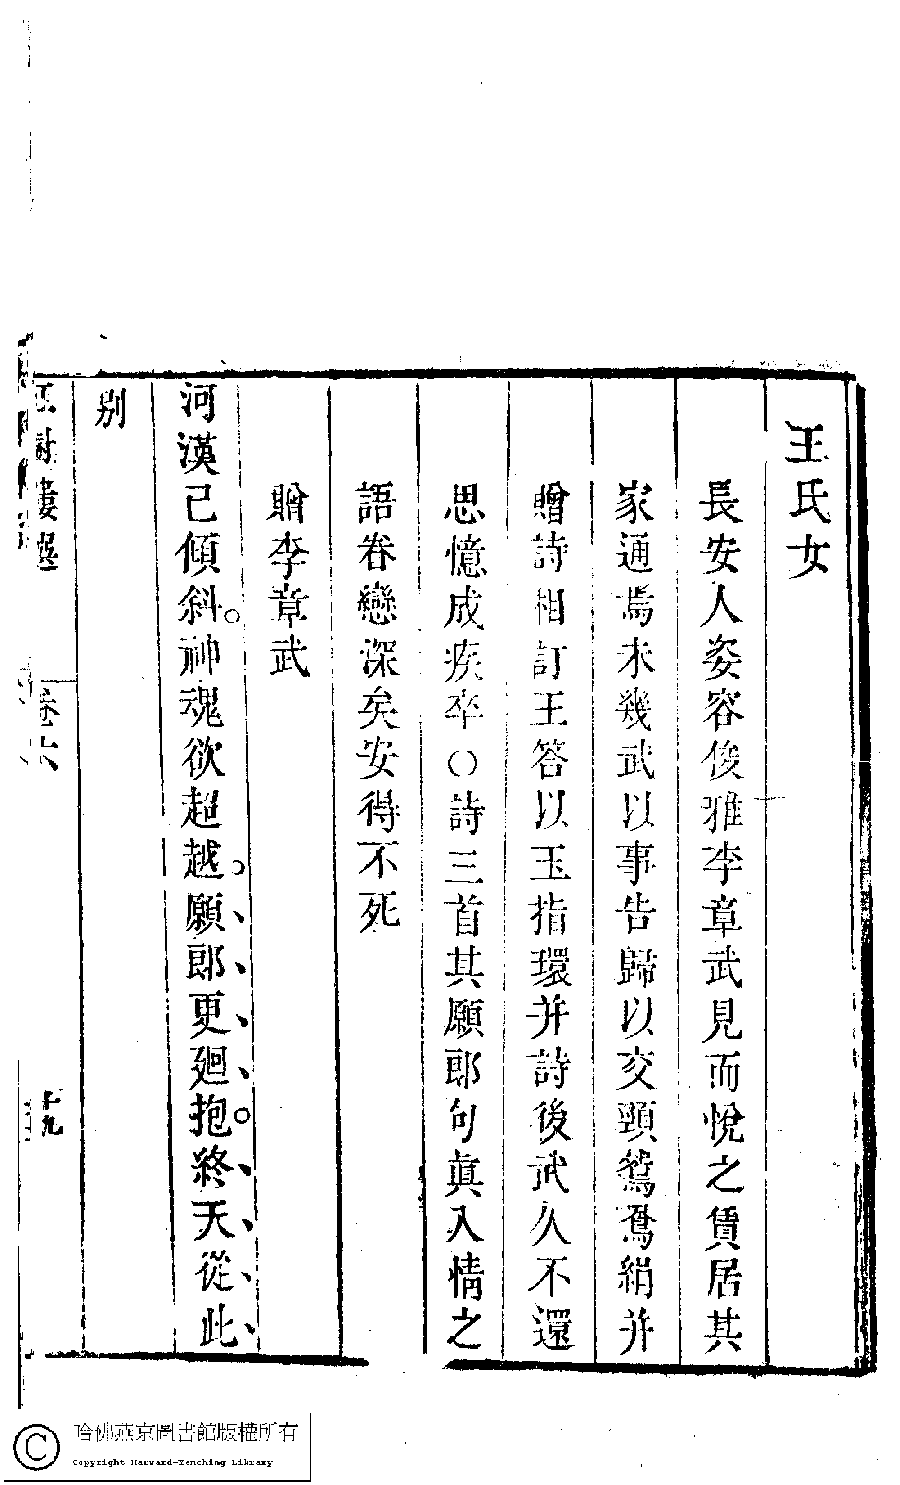 王氏女
長安人姿容俊雅李章武見而悅之賃居其
家通焉未幾武以事告歸以交頸鴛鴦絹并
贈詩相訂王答以玉指環并詩後武久不還
思憶成疾卒○詩三首其願郎句眞入情之
語眷戀深矣安得不死
贈李章武
河漢已傾斜。神魂欲超越。願郎更廻抱。終天從此
別
卷六
十九
哈佛燕京圖書館版權所有
Copyright Harvard-Yenching Library